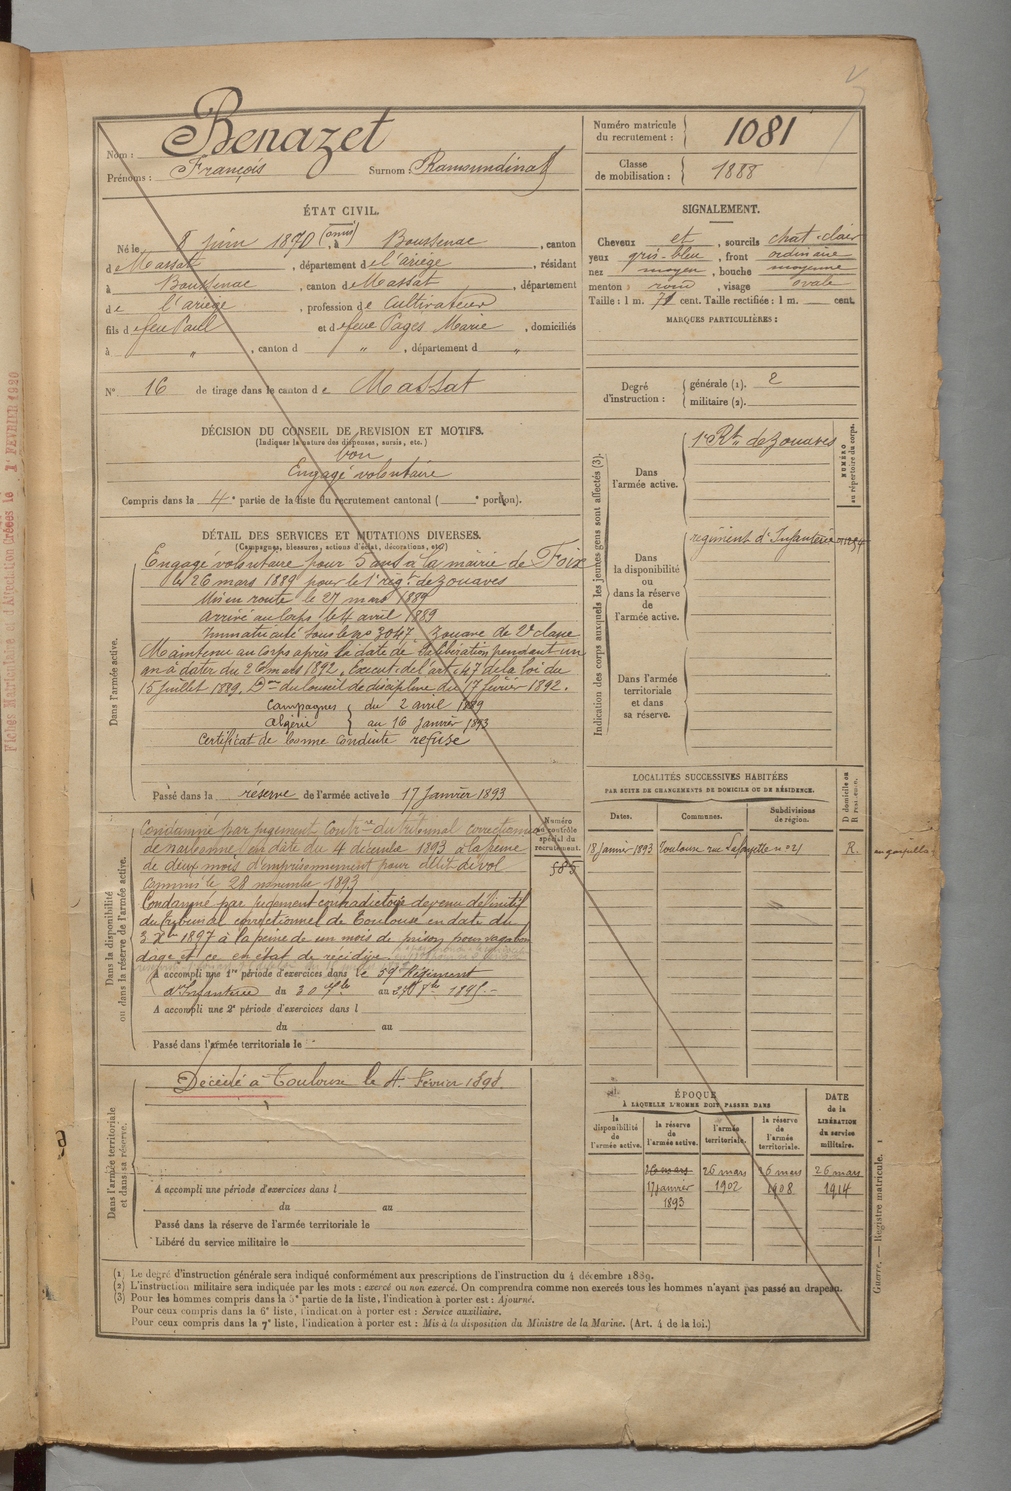 Nom : Benazet
Prénoms : François Surnom :
ÉTAT CIVIL.
Né le 8 juin 1870 (omis), à Boussenac, canton
de Massat, département de l'ariège, résidant
à Boussenac, canton de Massat, département
de l'ariège, profession de Cultivateur
fils de feu Paul et de feue Pagès Marie, domiciliés
à " , canton d " , département d "
N° 16 de tirage dans le canton de Massat
DÉCISION DU CONSEIL DE REVISION ET MOTIFS.
(Indiquer la nature des dispenses, sursis, etc.)
bon
Engagé volontaire
Compris dans la 4e partie de la liste du recrutement cantonal ( e portion).
DÉTAIL DES SERVICES ET MUTATIONS DIVERSES.
(Campagnes, blessures, actions d'éclat, décorations, etc.)
Dans l'armée active.
Engagé volontaire pour 5 ans à la mairie de Foix
le 26 mars 1889 pour le 1er régt de zouaves
Mis en route le 27 mars 1889
arrivé au corps le 4 avril 1889
Immatriculé sous le no 3047 Zouave de 2e classe
Maintenu au Corps après la date de la libération pendant un
an à dater du 26 mars 1892. Execut. de l'art. 47 de la loi du
15 juillet 1889. Don du Conseil de discipline du 17 février 1892.
Campagnes { du 2 avril 1889
Algérie { au 16 janvier 1893
Certificat de bonne conduite refusé
Passé dans la réserve de l'armée active le 17 janvier 1893
Dans la disponibilité
ou dans la réserve de l'armée active.
Condamné par jugement Contrre du tribunal correctionnel
de narbonne en date du 4 décembre 1893 à la peine
de deux mois d'emprisonnement pour délit de vol
commis le 28 novembre 1893
Condamné par jugement contradictoire devenu définitif
du tribunal correctionnel de Toulouse en date du
3 Xbre 1897 à la peine de un mois de prison pour vagabon
dage et ce en état de récidive.
A accompli une 1re période d'exercices dans le 59e Régiment
d'Infanterie du 30 7bre au 27 8bre 1895.
A accompli une 2e période d'exercices dans l
du au
Passé dans l'armée territoriale le
Numéro
au contrôle
spécial du
recrutement.
585
Dans l'armée territoriale
et dans sa réserve.
Décédé à Toulouse le 4 Février 1898.
A accompli une période d'exercices dans l
du au
Passé dans la réserve de l'armée territoriale le
Libéré du service militaire le
Numéro matricule
du recrutement : 1081
Classe
de mobilisation : 1888
SIGNALEMENT.
Cheveux et, sourcils chat-clair
yeux gris-bleu, front ordinaire
nez moyen, bouche moyenne
menton rond, visage ovale
Taille : 1 m. 71 cent. Taille rectifiée : 1 m. cent.
MARQUES PARTICULIÈRES :
Degré
d'instruction :
générale (1). 2
militaire (2).
Indication des corps auxquels les jeunes gens sont affectés (3).
Dans
l'armée active.
1er Rt de zouaves
NUMÉRO
au répertoire du corps.
Dans
la disponibilité
ou
dans la réserve
de
l'armée active.
régiment d'Infanterie
Dans l'armée
territoriale
et dans
sa réserve.
LOCALITÉS SUCCESSIVES HABITÉES
PAR SUITE DE CHANGEMENTS DE DOMICILE OU DE RÉSIDENCE.
Dates. Communes. Subdivisions
de région. D domicile ou
R résidence.
18 Janvier 1893 Toulouse rue Lafayette no 21 R.
ÉPOQUE
À LAQUELLE L'HOMME DOIT PASSER DANS
DATE
de la
LIBÉRATION
du service
militaire.
la
disponibilité
de
l'armée active.
la réserve
de
l'armée active.
l'armée
territoriale.
la réserve
de
l'armée
territoriale.
26 mars 26 mars 26 mars 26 mars
17 janvier 1902 1908 1914
1893
(1) Le degré d'instruction générale sera indiqué conformément aux prescriptions de l'instruction du 4 décembre 1889.
(2) L'instruction militaire sera indiquée par les mots : exercé ou non exercé. On comprendra comme non exercés tous les hommes n'ayant pas passé au drapeau.
(3) Pour les hommes compris dans la 5e partie de la liste, l'indication à porter est : Ajourné.
Pour ceux compris dans la 6e liste, l'indication à porter est : Service auxiliaire.
Pour ceux compris dans la 7e liste, l'indication à porter est : Mis à la disposition du Ministre de la Marine. (Art. 4 de la loi.)
Guerre. — Registre matricule. 1